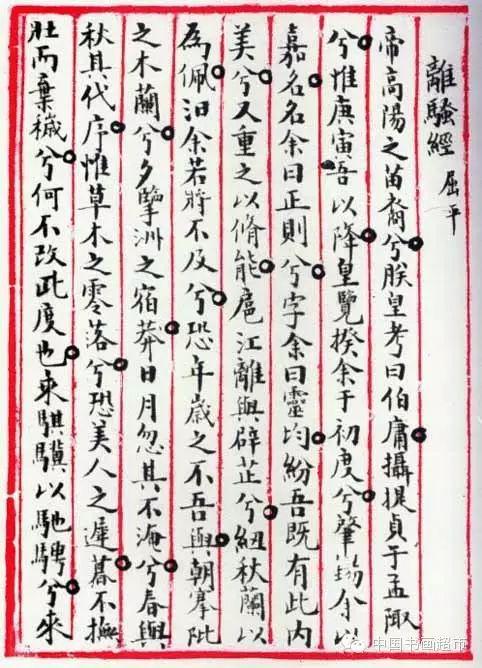 離騷經 屈平
帝高陽之苗裔兮朕皇考曰伯庸攝提貞于孟陬
兮惟庚寅吾以降皇覽揆余于初度兮肇錫余以
嘉名名余曰正則兮字余曰靈均紛吾既有此内
美兮又重之以脩能扈江離與辟芷兮紉秋蘭以
為佩汩余若將不及兮恐年歲之不吾與朝搴阰
之木蘭兮夕擥洲之宿莽日月忽其不淹兮春與
秋其代序惟草木之零落兮恐美人之遲暮不撫
壯而棄穢兮何不改此度也乘騏驥以馳騁兮來
中国书画超市